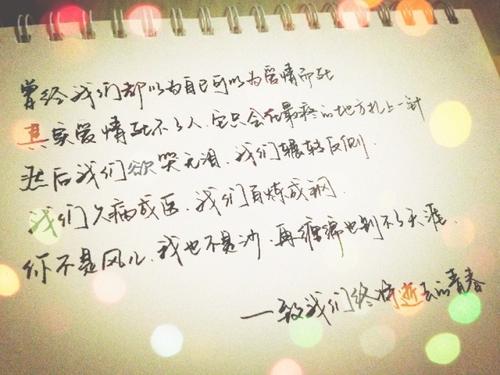 曾经我们都以为自己可以为爱情而死
其实爱情死不了人，它只会在最疼的地方扎上一针
然后我们欲哭无泪，我们辗转反侧
我们久病成医，我们百炼成钢
你不是风儿，我也不是沙，再缠绵也到不了天涯．
—致我们终将逝去的青春